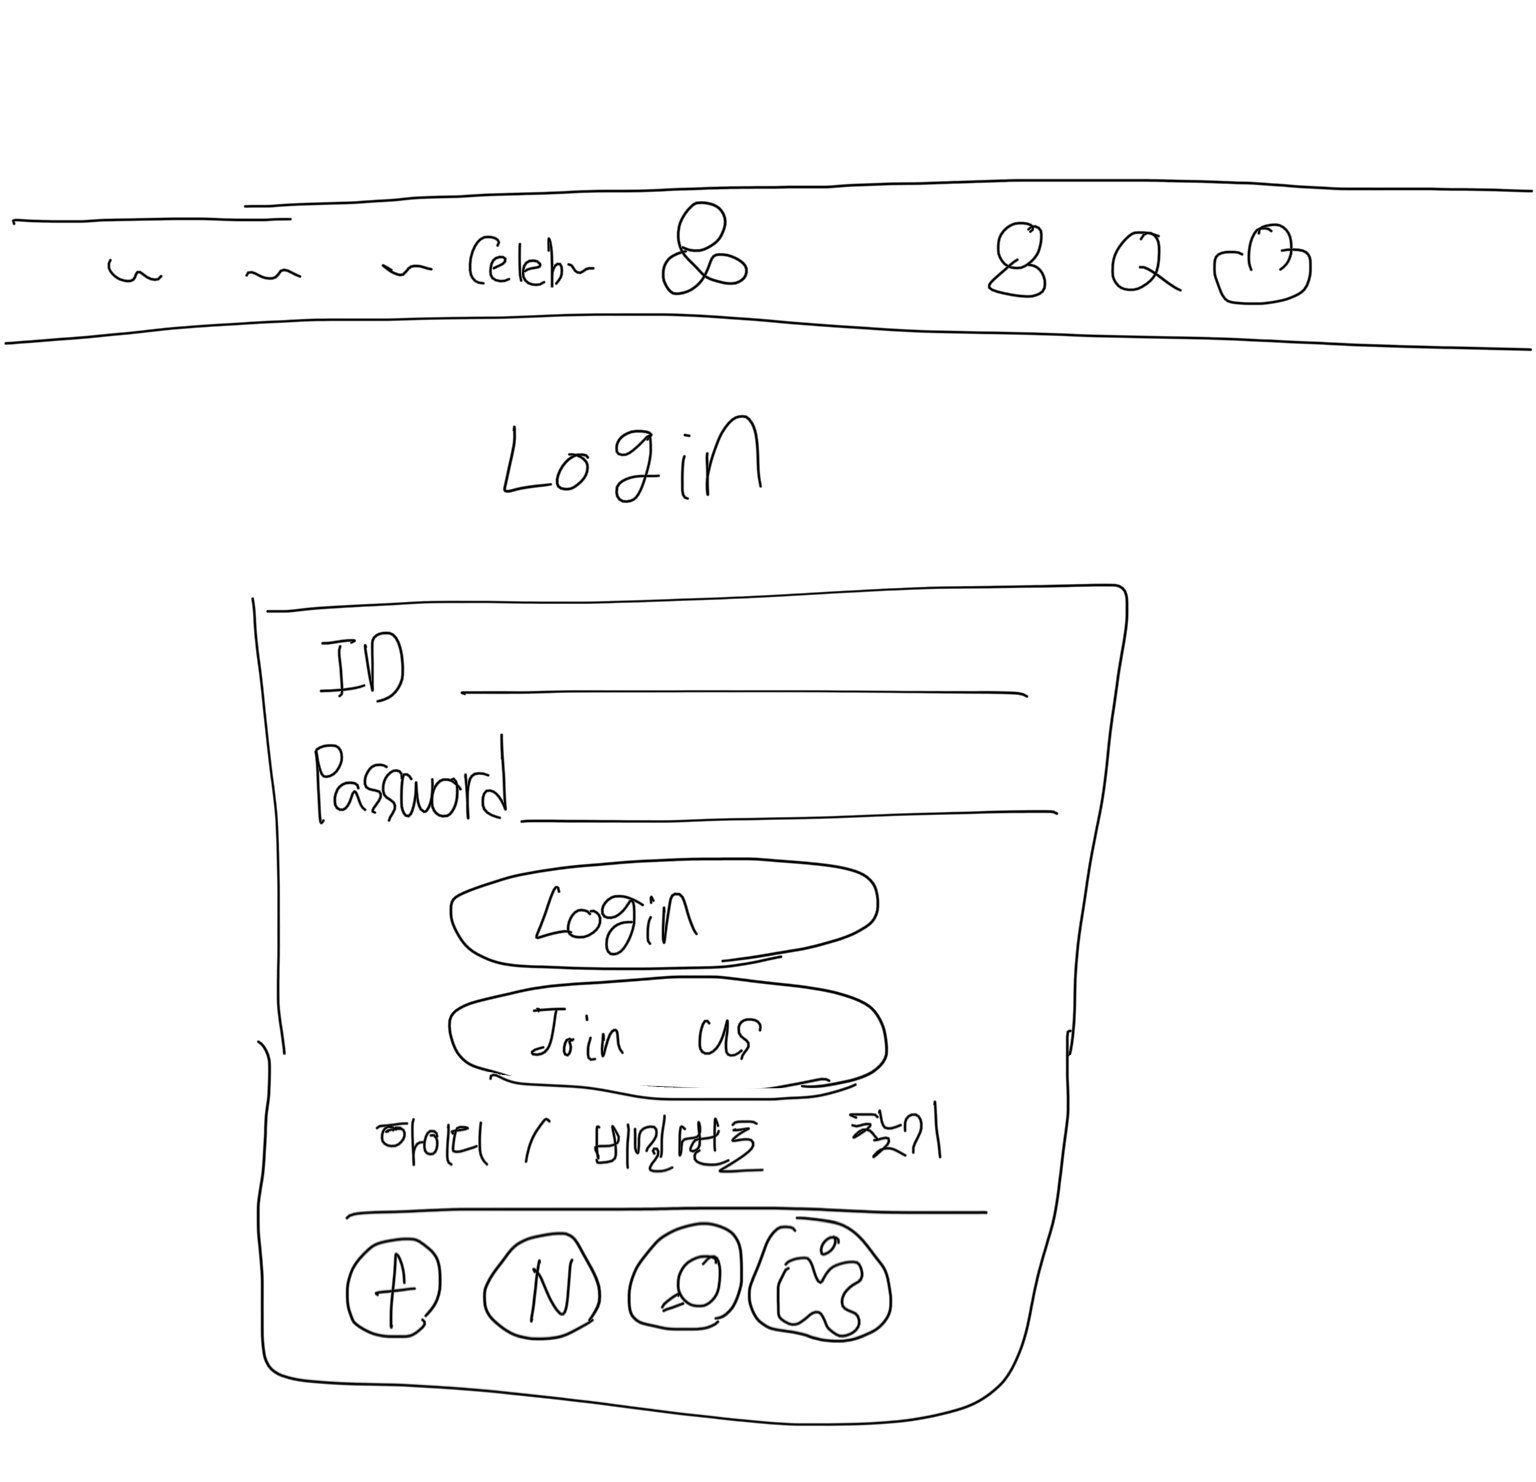 Celeb
Login
ID
Password
Login
Join us
아이디 / 비밀번호 찾기
f N